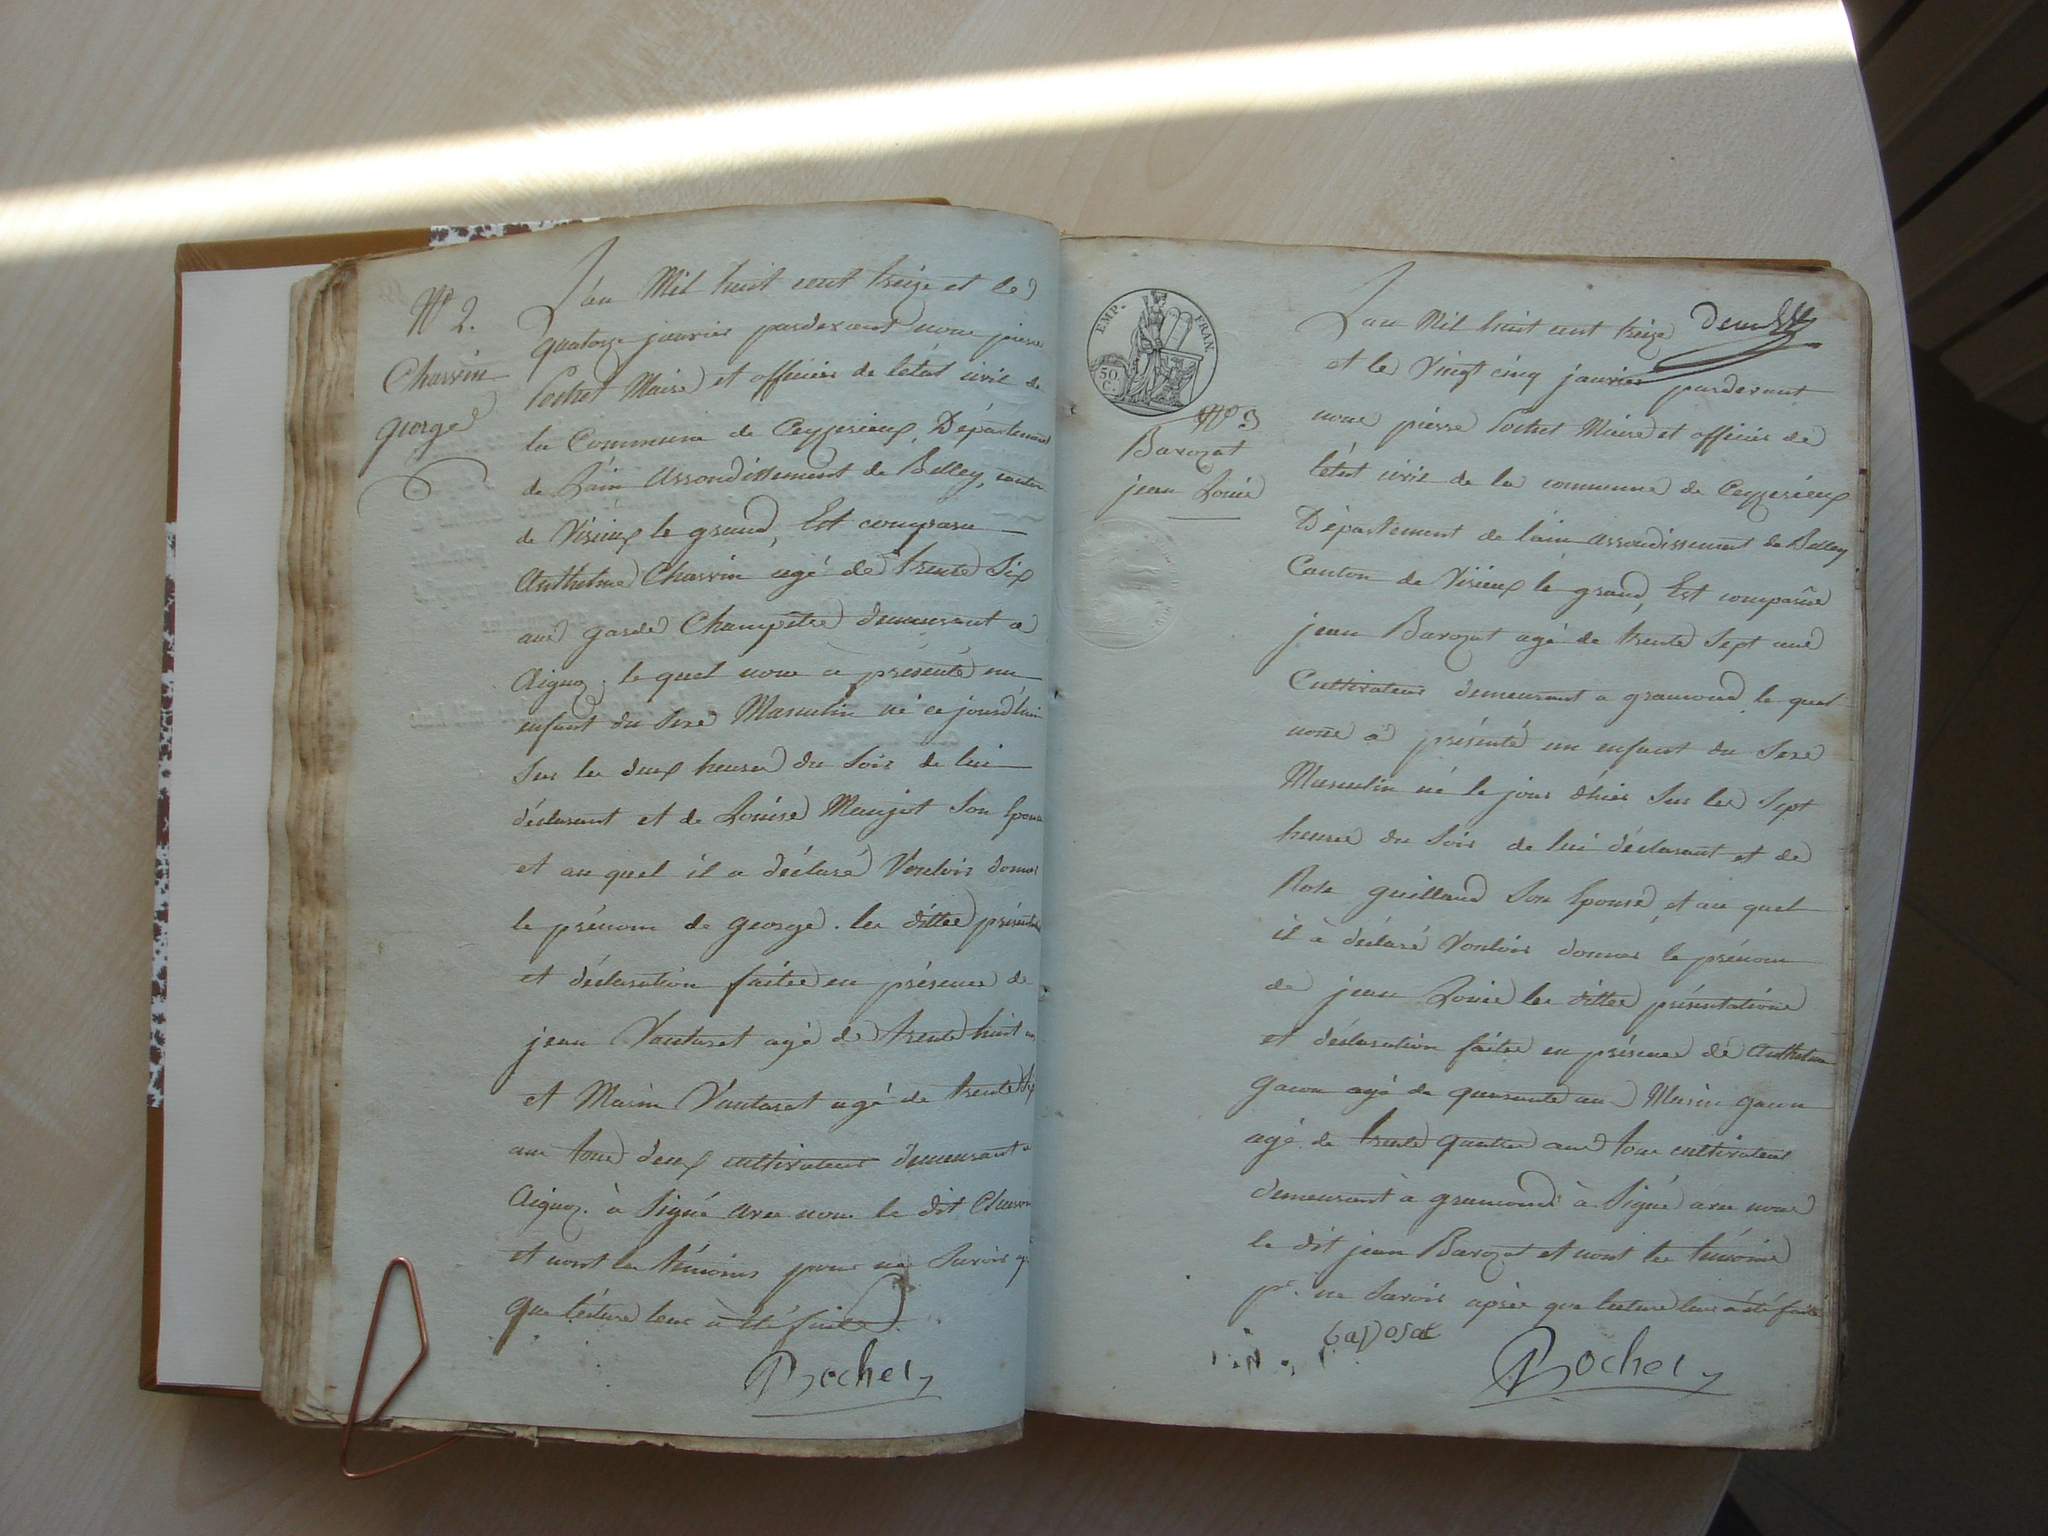 N° 2.
Charvin
george
L'an Mil huit cent treize et le
quatorze janvier pardevant nous pierre
Pochet Maire et officier de l'état civil de
la Commune de Ceyzerieux, Département
de L'ain arrondissement de Belley, canton
de Virieux le grand, Est comparu
Anthelme Charvin agé de trente Six
ans garde Champetre demeurant a
Aignoz. le quel nous a présenté un
enfant du Sexe Masculin né ce jourd'huin
Sur les deux heures du Soir de lui
déclarant et de Louise Maujot Son Epouse
et au quel il a déclaré Vouloir donner
le prénom de george. les dittes présentation
et déclaration faites en présence de
jean Vautaret agé de trente huit ans
et Marin Vautaret agé de trente Six
ans tous deux cultivateurs demeurant a
Aignoz. à Signé avec nous le dit Charvin
et nont les témoins pour ne Savoir
que lecture leur a été faite
Pochet
EMP. FRAN.
50 C.
N° 3
Barozat
jean Louis
deux
L'an Mil huit cent treize
et le Vingt cinq janvier pardevant
nous pierre Pochet Maire et officier de
l'état civil de la commune de Ceyzerieux
Département de l'ain arrondissement de Belley
Canton de Virieux le grand, Est comparue
jean Barozat agé de trente Sept ans
Cultivateur demeurant a gramond, le quel
nous a présenté un enfant du Sexe
Masculin né le jour d'hier Sur les Sept
heures du Soir de lui déclarant et de
Rose guilland Son Epouse, et au quel
il à déclaré Vouloir donner le prénom
de jean Louis les dittes présentations
et déclaration faites en présence de Anthelme
gacon agé de quarante ans Marin gacon
agé de trente quatre ans tous cultivateurs
demeurant à gramond à Signé avec nous
le dit jean Barozat et nont les témoins
pr. ne Savoir après que lecture leur a été faite
baposat
Pochet